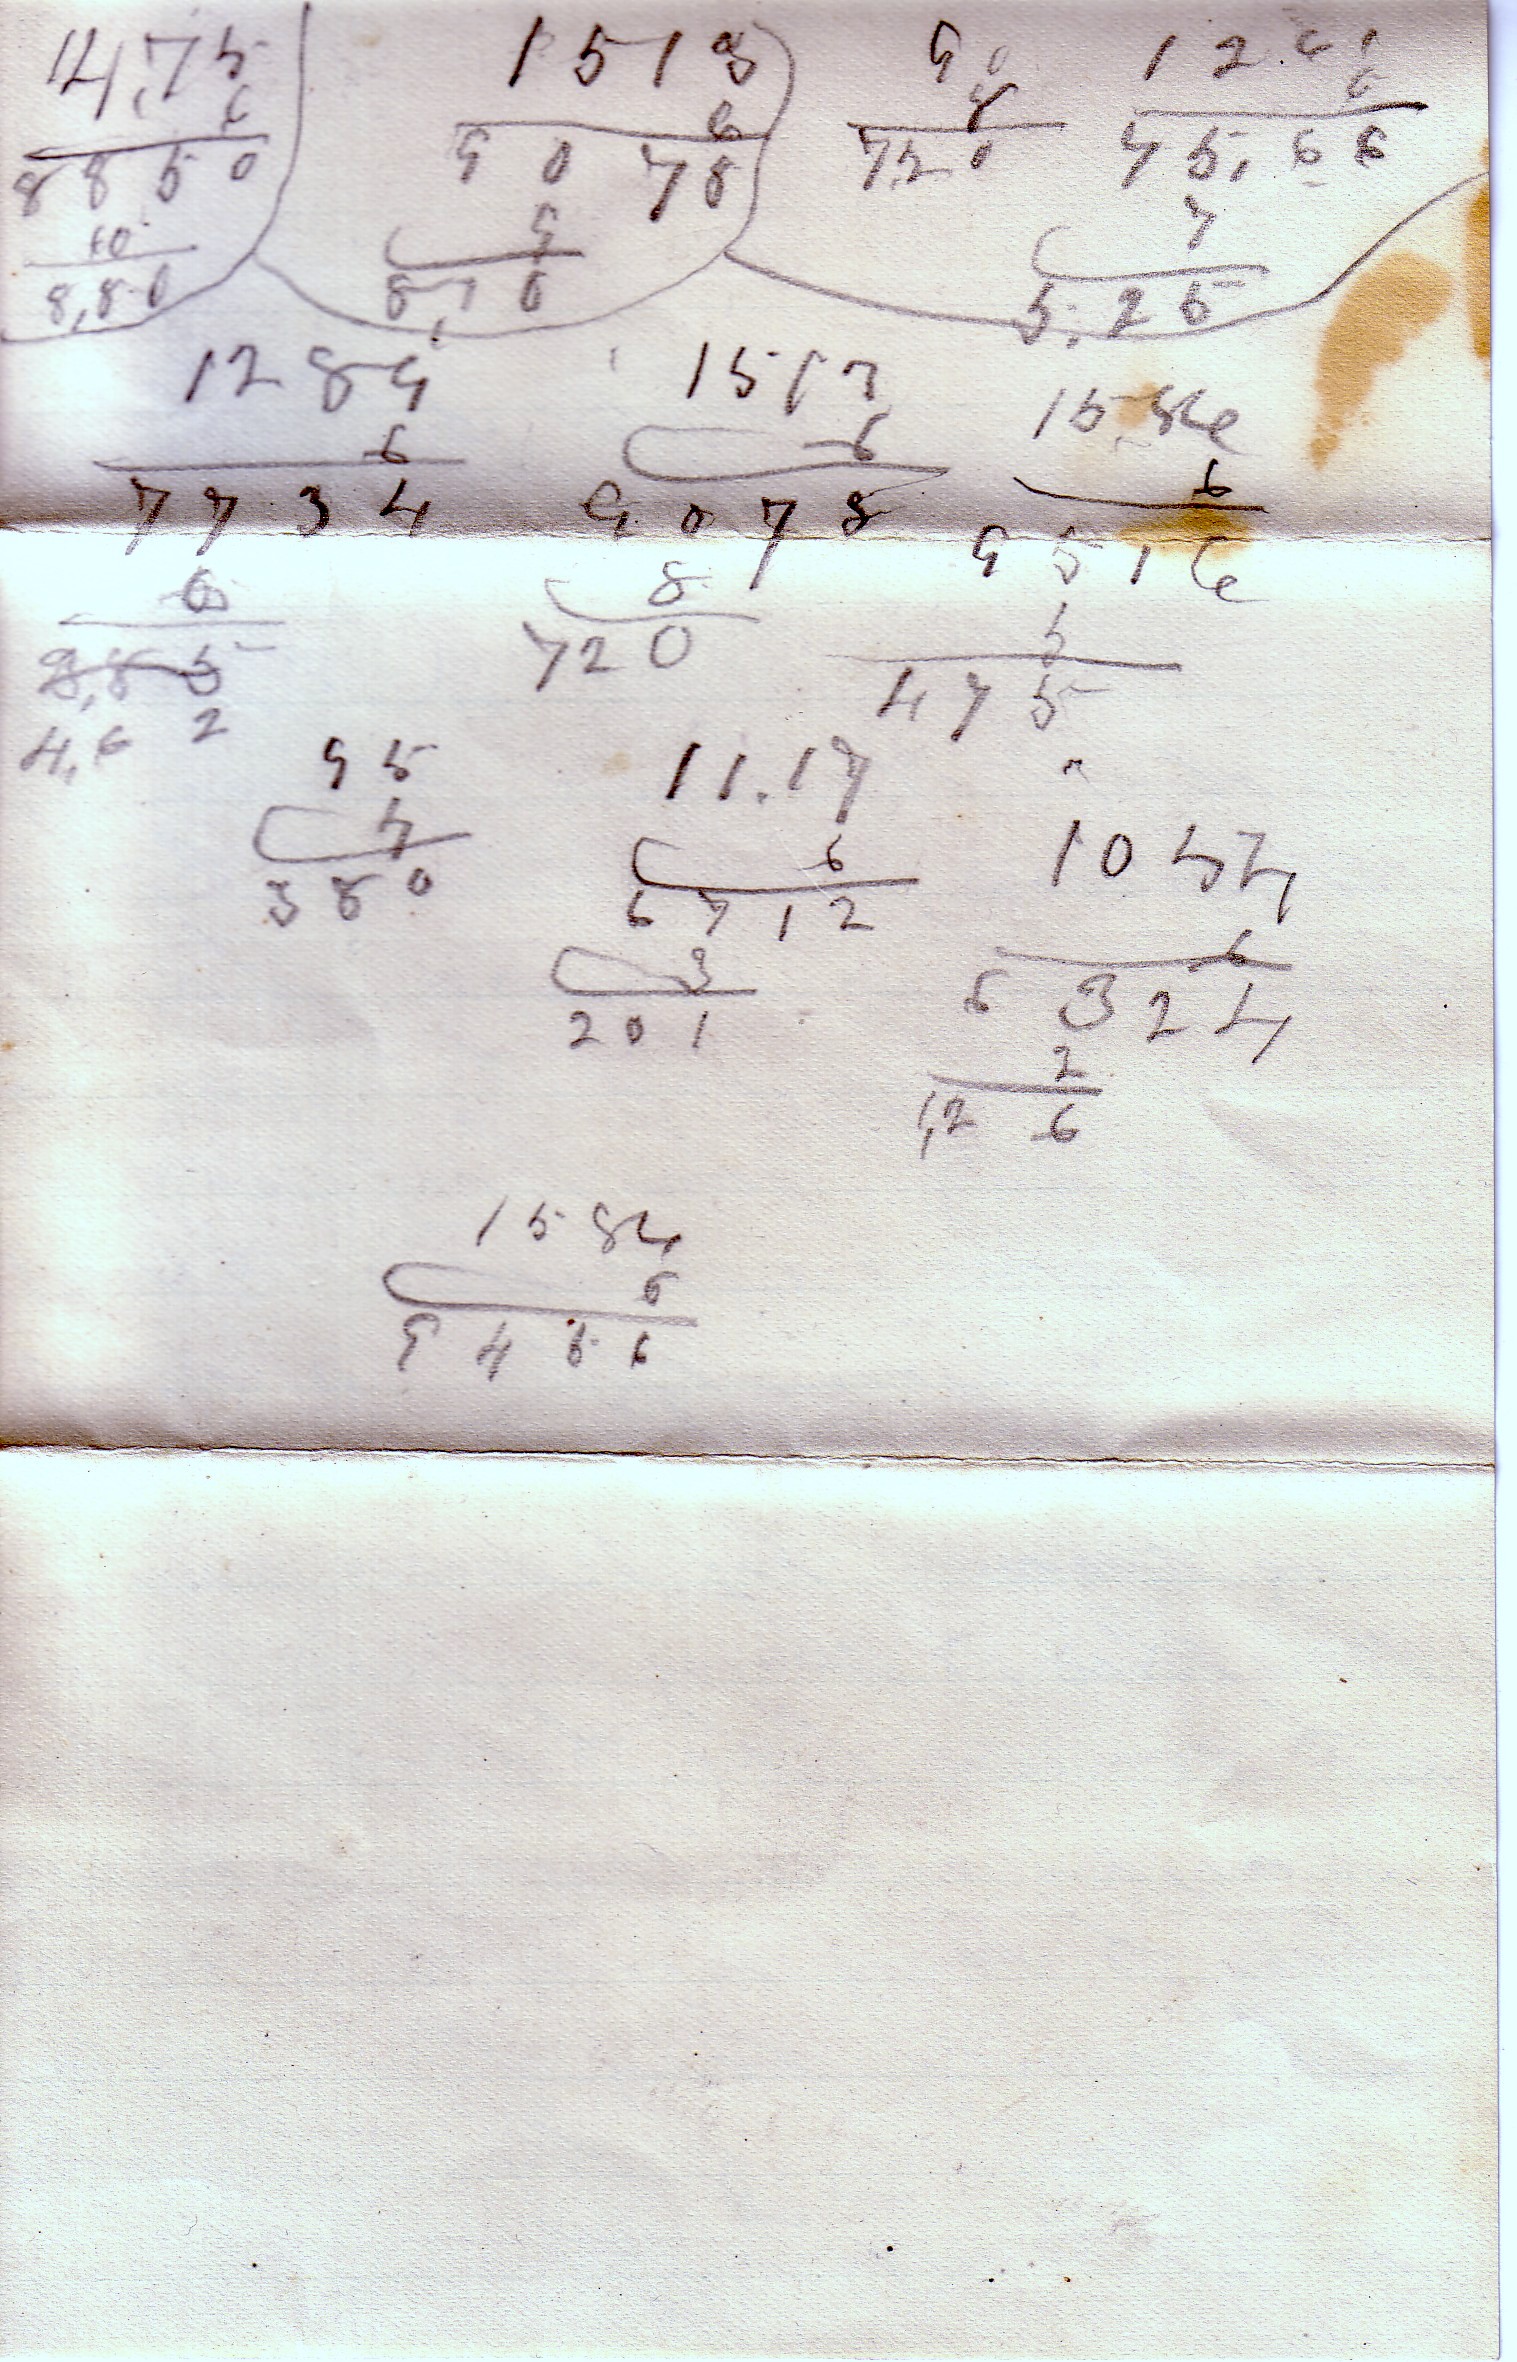 14,75
6
8850
10
8,80
1513
6
9078
9
8,10
90
8
720
1261
6
75,66
7
5,25
1289
6
7734
6
4,62
1513
6
9078
8
720
1586
6
9516
5
475
95
4
380
11.17
6
6712
3
201
1054
6
6324
2
1,26
1584
6